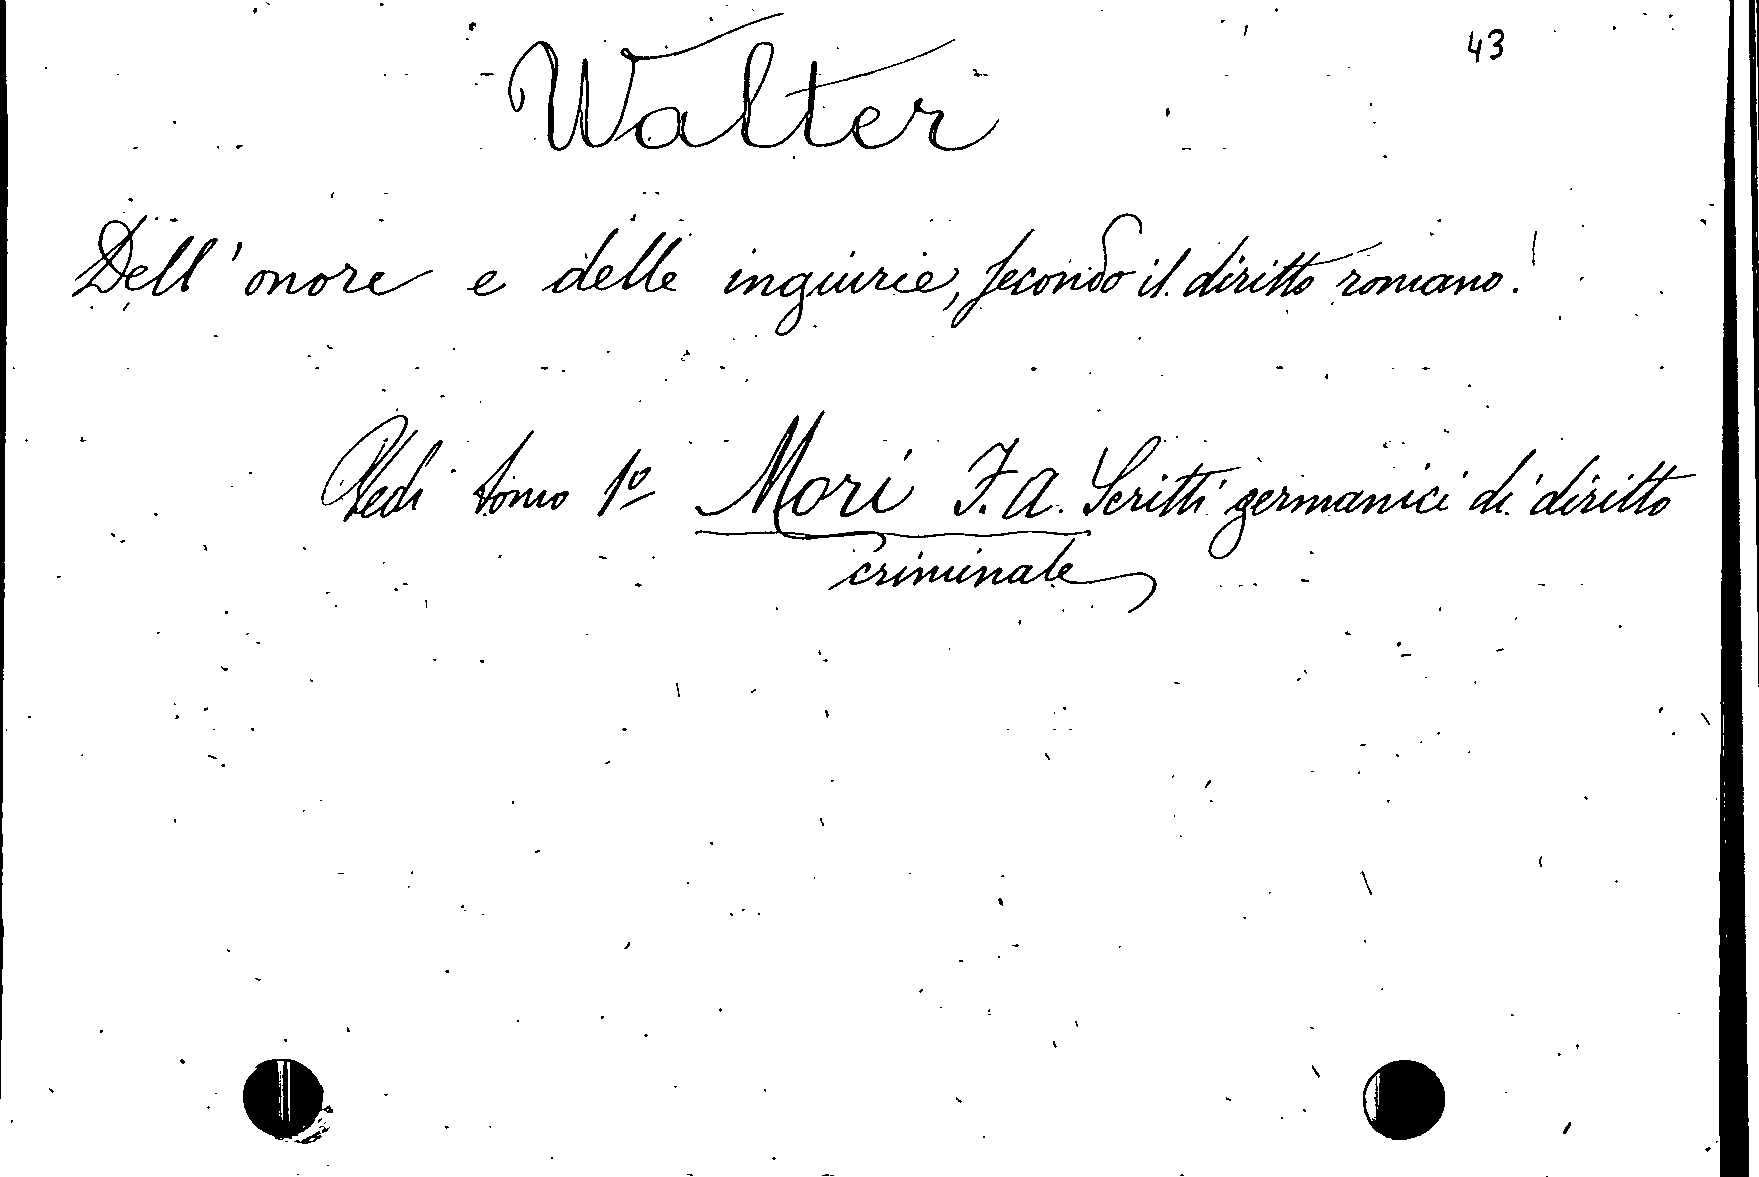 43
Walter
Dell'onore e delle ingiurie, secondo il diritto romano.
Vedi tomo 1º Mori F.A. Scritti germanici di diritto
criminale